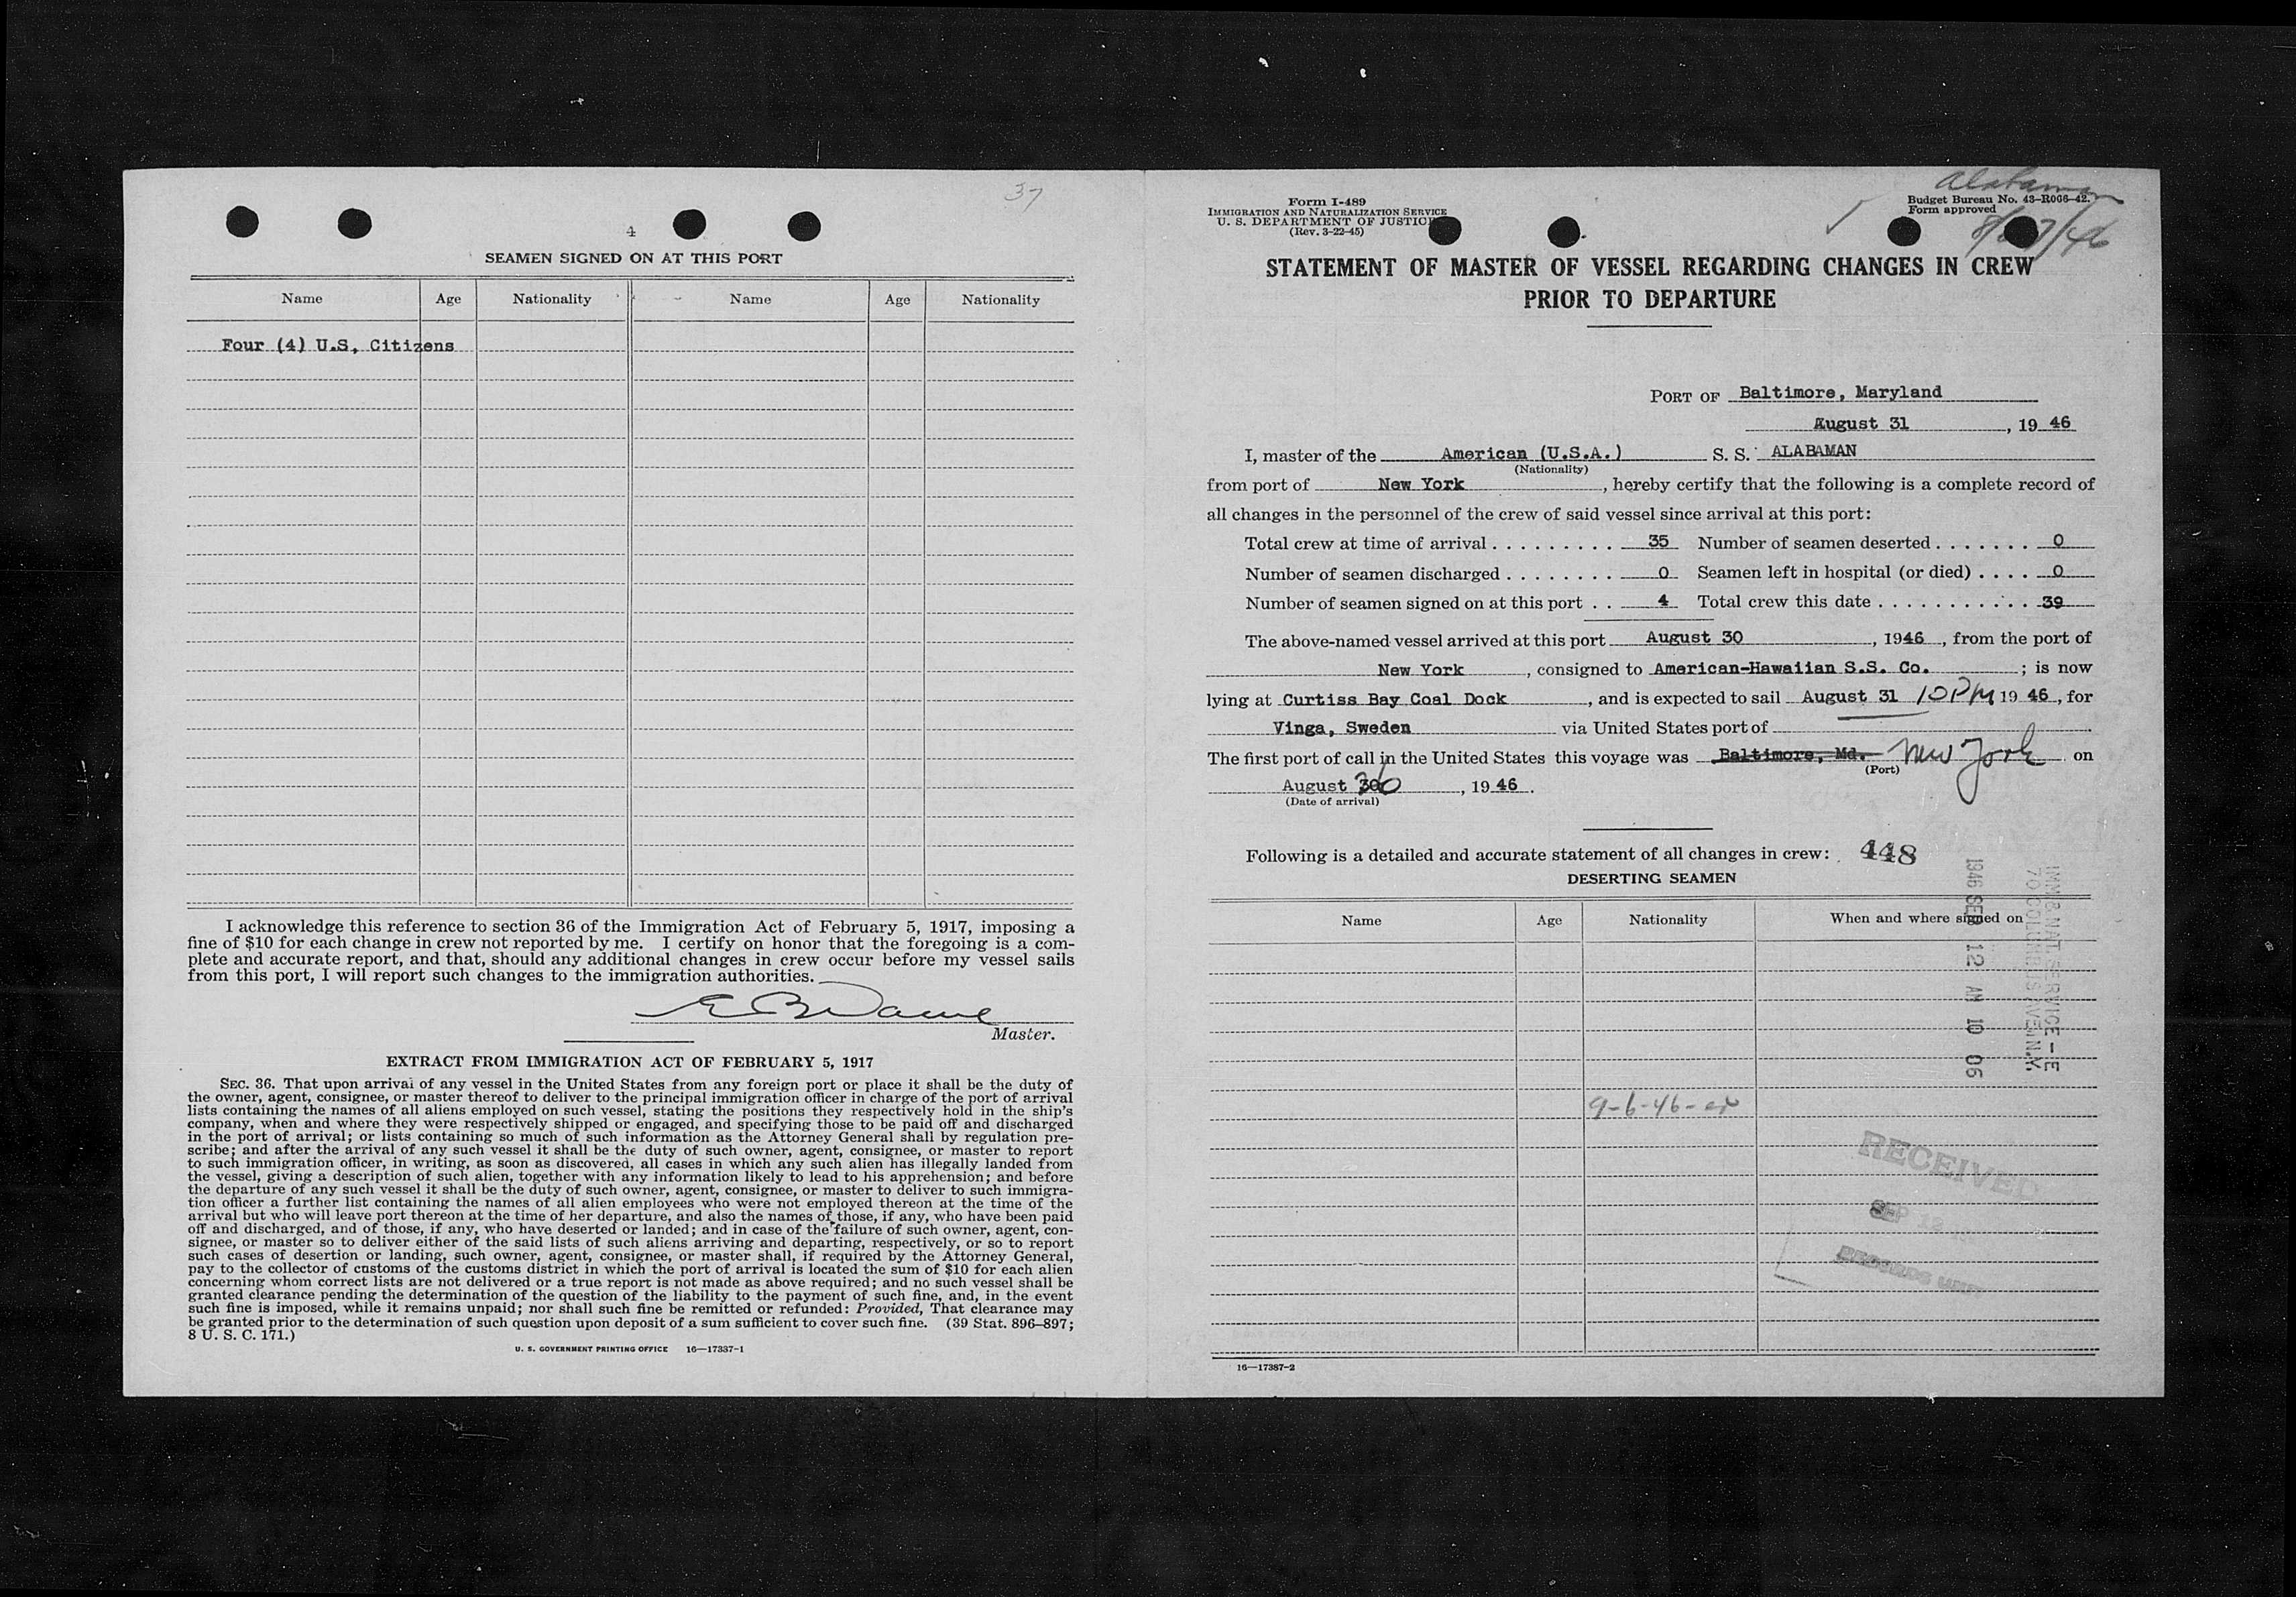 37
4
SEAMEN SIGNED ON AT THIS PORT
Name Age Nationality Name Age Nationality
Four (4) U.S. Citizens
I acknowledge this reference to section 36 of the Immigration Act of February 5, 1917, imposing a
fine of $10 for each change in crew not reported by me. I certify on honor that the foregoing is a com-
plete and accurate report, and that, should any additional changes in crew occur before my vessel sails
from this port, I will report such changes to the immigration authorities.
Master.
EXTRACT FROM IMMIGRATION ACT OF FEBRUARY 5, 1917
SEC. 36. That upon arrival of any vessel in the United States from any foreign port or place it shall be the duty of
the owner, agent, consignee, or master thereof to deliver to the principal immigration officer in charge of the port of arrival
lists containing the names of all aliens employed on such vessel, stating the positions they respectively hold in the ship's
company, when and where they were respectively shipped or engaged, and specifying those to be paid off and discharged
in the port of arrival; or lists containing so much of such information as the Attorney General shall by regulation pre-
scribe; and after the arrival of any such vessel it shall be the duty of such owner, agent, consignee, or master to report
to such immigration officer, in writing, as soon as discovered, all cases in which any such alien has illegally landed from
the vessel, giving a description of such alien, together with any information likely to lead to his apprehension; and before
the departure of any such vessel it shall be the duty of such owner, agent, consignee, or master to deliver to such immigra-
tion officer a further list containing the names of all alien employees who were not employed thereon at the time of the
arrival but who will leave port thereon at the time of her departure, and also the names of those, if any, who have been paid
off and discharged, and of those, if any, who have deserted or landed; and in case of the failure of such owner, agent, con-
signee, or master so to deliver either of the said lists of such aliens arriving and departing, respectively, or so to report
such cases of desertion or landing, such owner, agent, consignee, or master shall, if required by the Attorney General,
pay to the collector of customs of the customs district in which the port of arrival is located the sum of $10 for each alien
concerning whom correct lists are not delivered or a true report is not made as above required; and no such vessel shall be
granted clearance pending the determination of the question of the liability to the payment of such fine, and, in the event
such fine is imposed, while it remains unpaid; nor shall such fine be remitted or refunded: Provided, That clearance may
be granted prior to the determination of such question upon deposit of a sum sufficient to cover such fine. (39 Stat. 896–897;
8 U. S. C. 171.)
U. S. GOVERNMENT PRINTING OFFICE 16—17387-1
Alabaman
Form I-489
IMMIGRATION AND NATURALIZATION SERVICE
U. S. DEPARTMENT OF JUSTICE
(Rev. 3-22-45)
Budget Bureau No. 43–R006–42.
Form approved
STATEMENT OF MASTER OF VESSEL REGARDING CHANGES IN CREW
PRIOR TO DEPARTURE
PORT OF Baltimore, Maryland
August 31, 19 46
I, master of the American (U.S.A.) S. S. ALABAMAN
(Nationality)
from port of New York, hereby certify that the following is a complete record of
all changes in the personnel of the crew of said vessel since arrival at this port:
Total crew at time of arrival . . . . . . . . . 35 Number of seamen deserted . . . . . . . 0
Number of seamen discharged . . . . . . . . 0 Seamen left in hospital (or died) . . . . 0
Number of seamen signed on at this port . . 4 Total crew this date . . . . . . . . . . . . 39
The above-named vessel arrived at this port August 30, 1946, from the port of
New York, consigned to American-Hawaiian S.S. Co.; is now
lying at Curtiss Bay Coal Dock, and is expected to sail August 31 10 PM 19 46, for
Vinga, Sweden via United States port of
The first port of call in the United States this voyage was Baltimore, Md. New York on
(Port)
August 30, 19 46.
(Date of arrival)
Following is a detailed and accurate statement of all changes in crew: 448
DESERTING SEAMEN
Name Age Nationality When and where signed on
IMM & NAT. SERVICE - E
70 COLUMBUS AVE. N.Y.
1946 SEP 12 AM 10 06
9-6-46
RECEIVED
SEP 12
RECORDS UNIT
16—17387-2